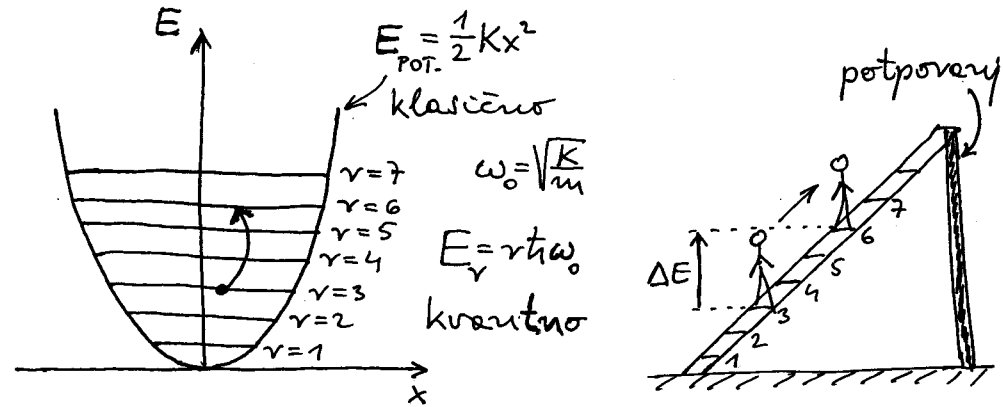 E
E_POT. = 1/2 Kx²
klasično
ω₀ = √(K/m)
ν=7
ν=6
ν=5
ν=4
ν=3
ν=2
ν=1
E_ν = νħω₀
kvantno
x
potporanj
ΔE
7
6
5
4
3
2
1